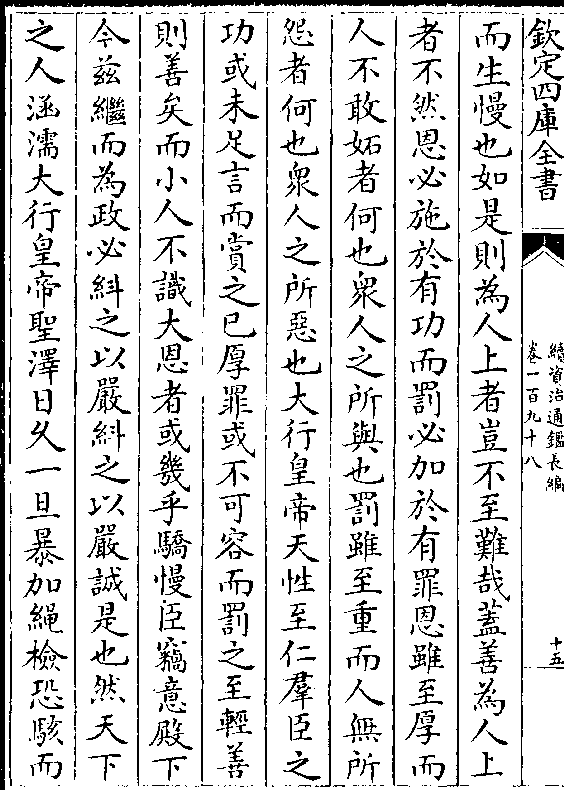 欽定四庫全書
續資治通鑑長編
卷一百九十八
十五
而生慢也如是則為人上者豈不至難哉蓋善為人上
者不然恩必施於有功而罰必加於有罪恩雖至厚而
人不敢妬者何也衆人之所與也罰雖至重而人無所
怨者何也衆人之所惡也大行皇帝天性至仁羣臣之
功或未足言而賞之已厚罪或不可容而罰之至輕善
則善矣而小人不識大恩者或幾乎驕慢臣竊意殿下
今兹繼而為政必糾之以嚴糾之以嚴誠是也然天下
之人涵濡大行皇帝聖澤日久一旦暴加繩檢恐駭而